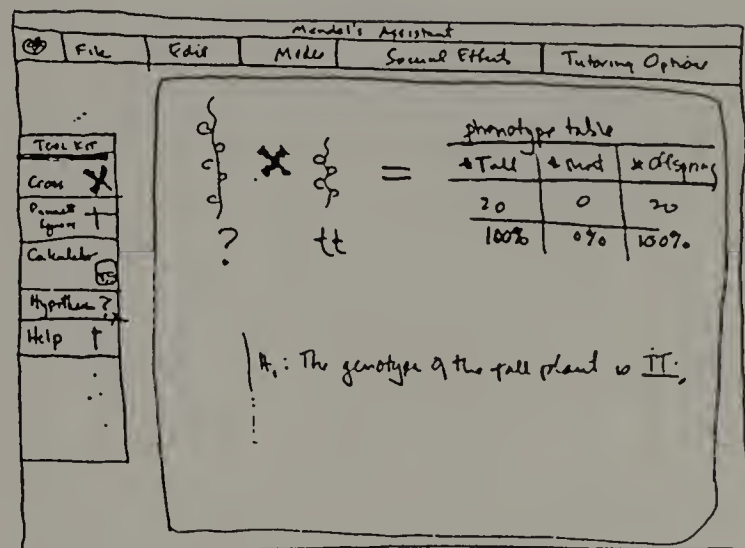 Mendel's Assistant
File Edit Modes Special Effects Tutoring Options
TOOL KIT
Cross
Punnett Square
Calculator
Hypothesis ?
Help
? tt
=
phenotype table
# Tall # Short # Offspring
20 0 20
100% 0% 100%
H₁: The genotype of the tall plant is TT.